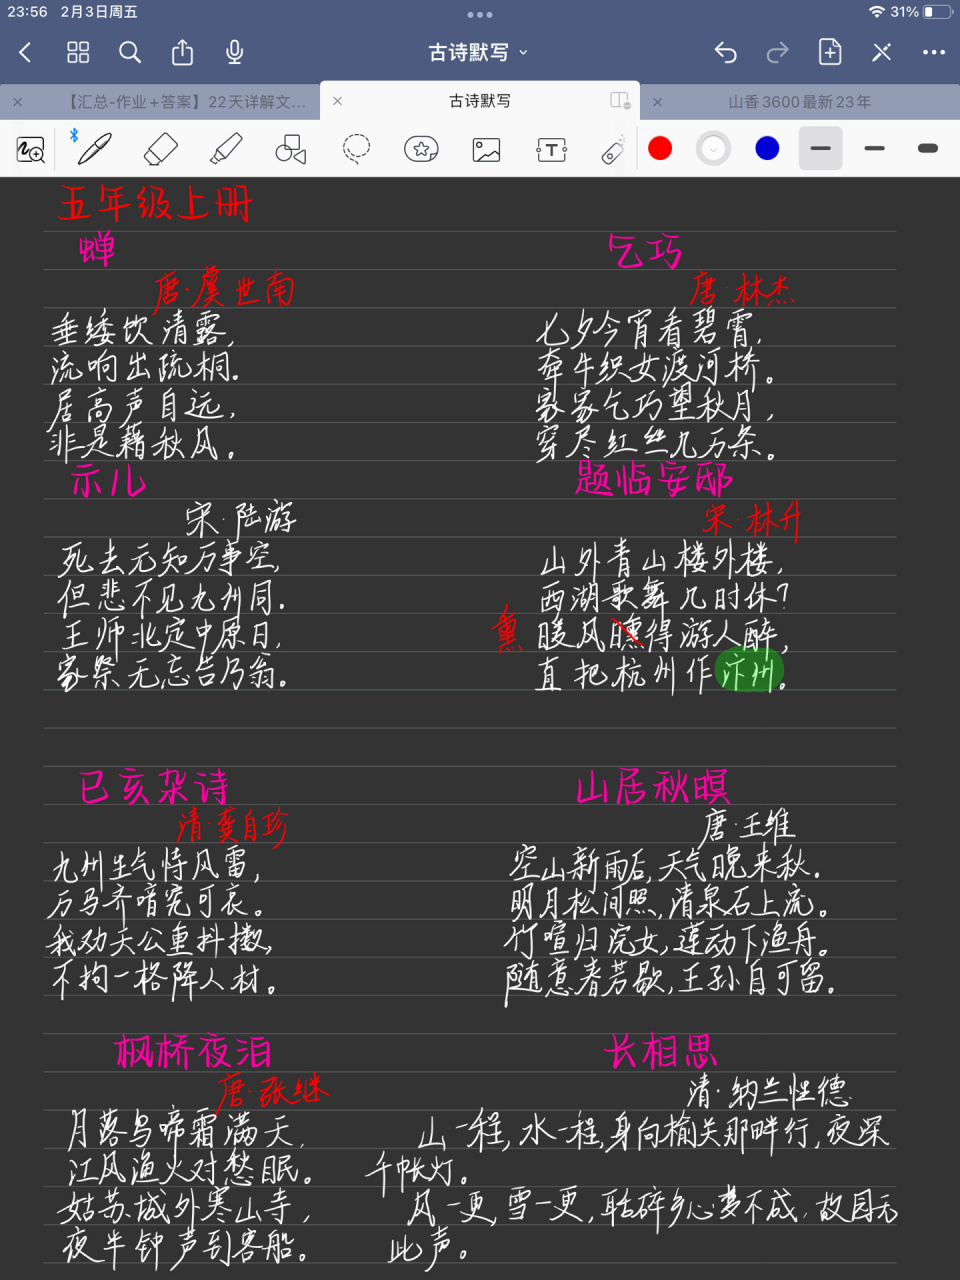 23:56 2月3日周五
31%
古诗默写
【汇总-作业+答案】22天详解文...
古诗默写
山香3600最新23年
五年级上册
蝉
唐·虞世南
垂緌饮清露,
流响出疏桐.
居高声自远,
非是藉秋风.
乞巧
唐·林杰
七夕今宵看碧霄,
牵牛织女渡河桥。
家家乞巧望秋月,
穿尽红丝几万条。
示儿
宋·陆游
死去元知万事空,
但悲不见九州同.
王师北定中原日,
家祭无忘告乃翁.
题临安邸
宋·林升
山外青山楼外楼,
西湖歌舞几时休?
熏
暖风得游人醉,
直把杭州作汴州。
已亥杂诗
清·龚自珍
九州生气恃风雷,
万马齐喑究可哀。
我劝天公重抖擞,
不拘一格降人材.
山居秋暝
唐·王维
空山新雨后,天气晚来秋.
明月松间照,清泉石上流。
竹喧归浣女,莲动下渔舟。
随意春芳歇,王孙自可留.
枫桥夜泊
唐·张继
月落乌啼霜满天,
江风渔火对愁眠。
姑苏城外寒山寺,
夜半钟声到客船。
长相思
清·纳兰性德
山一程,水一程,身向榆关那畔行,夜深
千帐灯.
风一更,雪一更,聒碎乡心梦不成,故园无
此声。